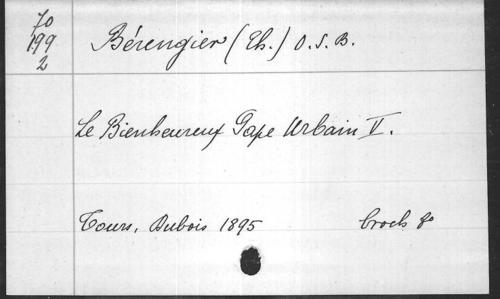 70
199
2
Bérengier (Th.) O. S. B.
Le Bienheureux Pape Urbain V.
Tours, Dubois 1895 broch. 8o